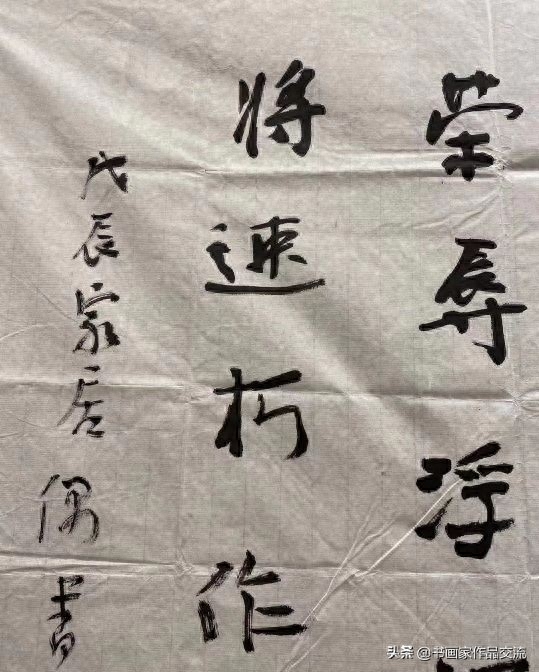 荣辱浮
将速朽作
戊辰家居偶书
头条 @书画家作品交流